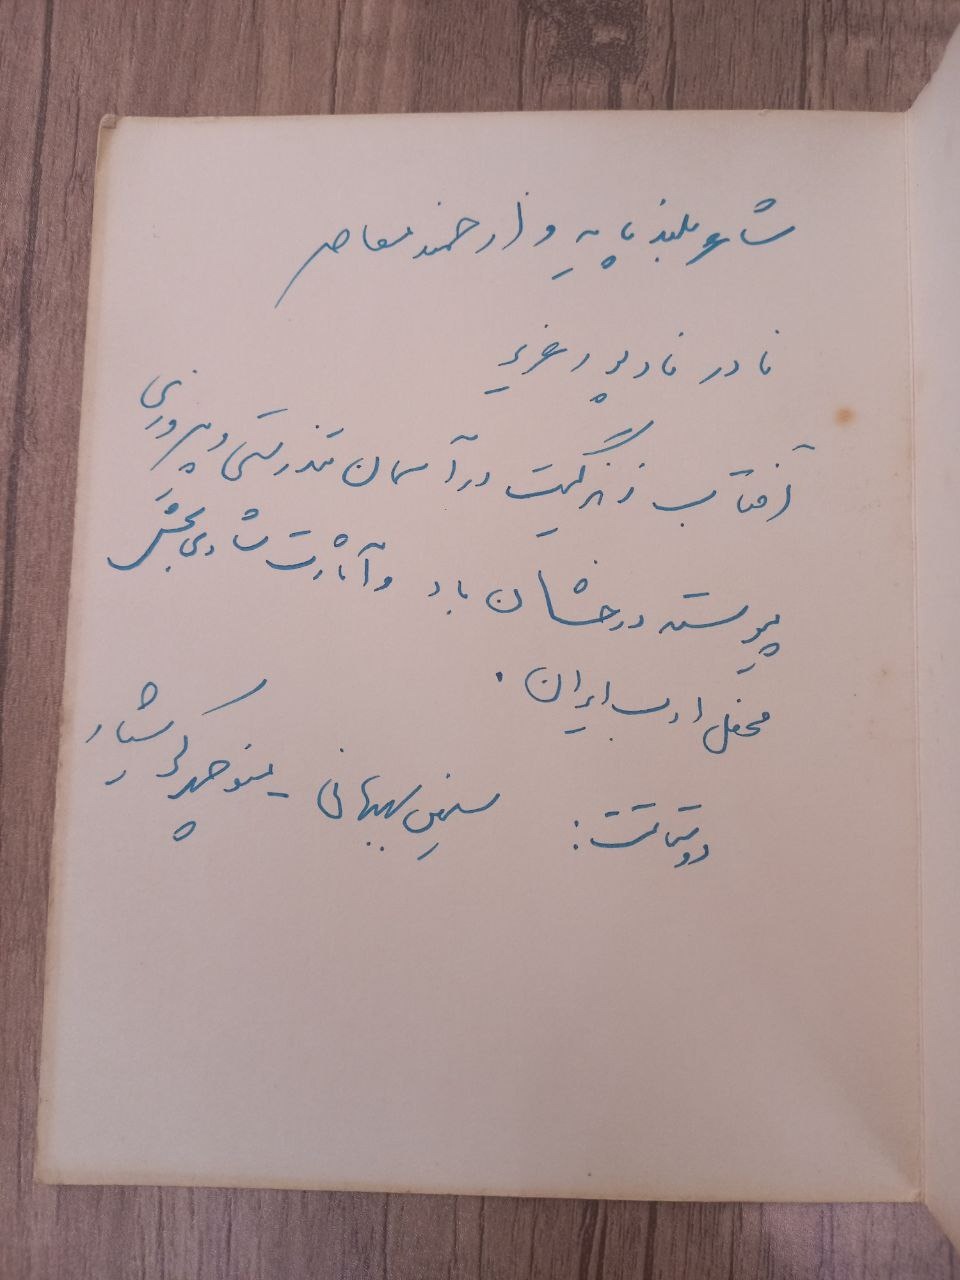 شاعر بلندپایه و ارجمند معاصر
نادر نادرپور عزیز
آفتاب زندگیت در آسمان تندرستی و پیروزی
پیوسته درخشان باد و آثارت شادی‌بخش
محفل ادب ایران.
دوستانت: سیمین بهبهانی - منوچهر کوشیار